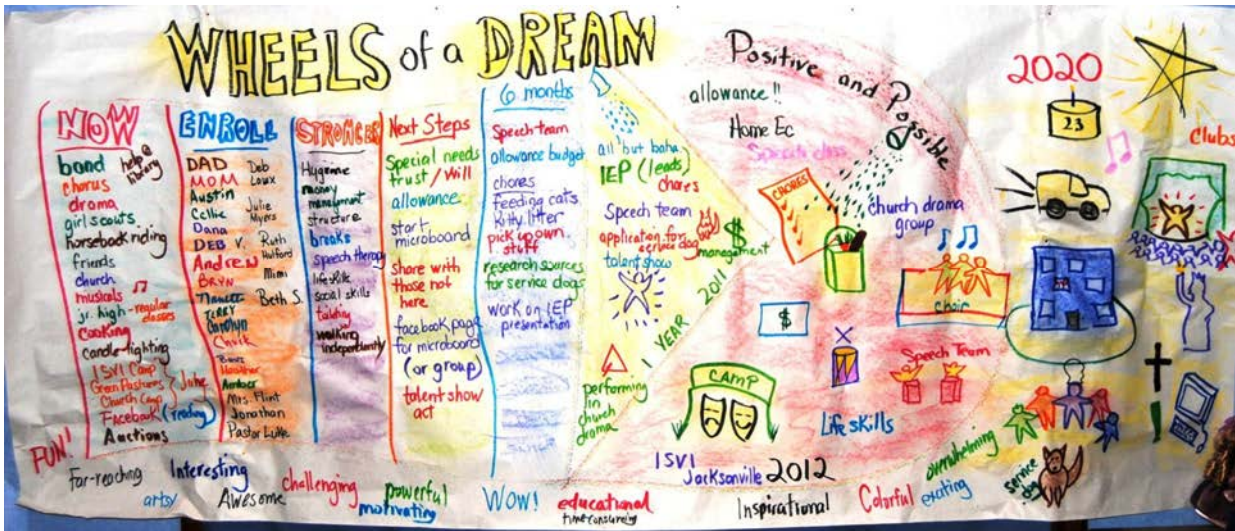 WHEELS of a DREAM
NOW
band
help @
library
chorus
drama
girl scouts
horseback riding
friends
church
musicals
jr. high - regular
classes
cooking
candle-lighting
ISVI Camp
Green Pastures
Church Camp
June
Facebook (trading)
Auctions
FUN!
ENROLL
DAD
MOM
Austin
Cellie
Dana
DEB V.
Andrew
BRYN
TERRY
Carolyn
Chuck
Heather
Amber
Mrs. Flint
Jonathan
Pastor Luke
Deb
Laux
Julie
Myers
Ruth
Hulford
Mimi
Beth S.
STRONGER
Hygiene
money
management
structure
breaks
speech therapy
life skills
social skills
talking
walking
independently
Next Steps
Special needs
trust / Will
allowance
start
microboard
Share with
those not
here
facebook page
for microboard
(or group)
talent show
act
6 months
Speech team
allowance budget
chores
feeding cats
Kitty litter
pick up own
stuff
research sources
for service dogs
work on IEP
presentation
all but baha
IEP (leads)
chores
Speech team
application for
service dog
talent show
performing
in
church
drama
1 YEAR
2011
Positive and Possible
allowance !!
Home Ec
Speech class
CHORES
$
management
church drama
group
choir
$
Speech Team
CAMP
Life skills
ISVI
Jacksonville
2012
2020
23
clubs
service
dog
far-reaching
artsy
Interesting
Awesome
challenging
powerful
motivating
Wow!
educational
time consuming
Inspirational
Colorful
exciting
overwhelming